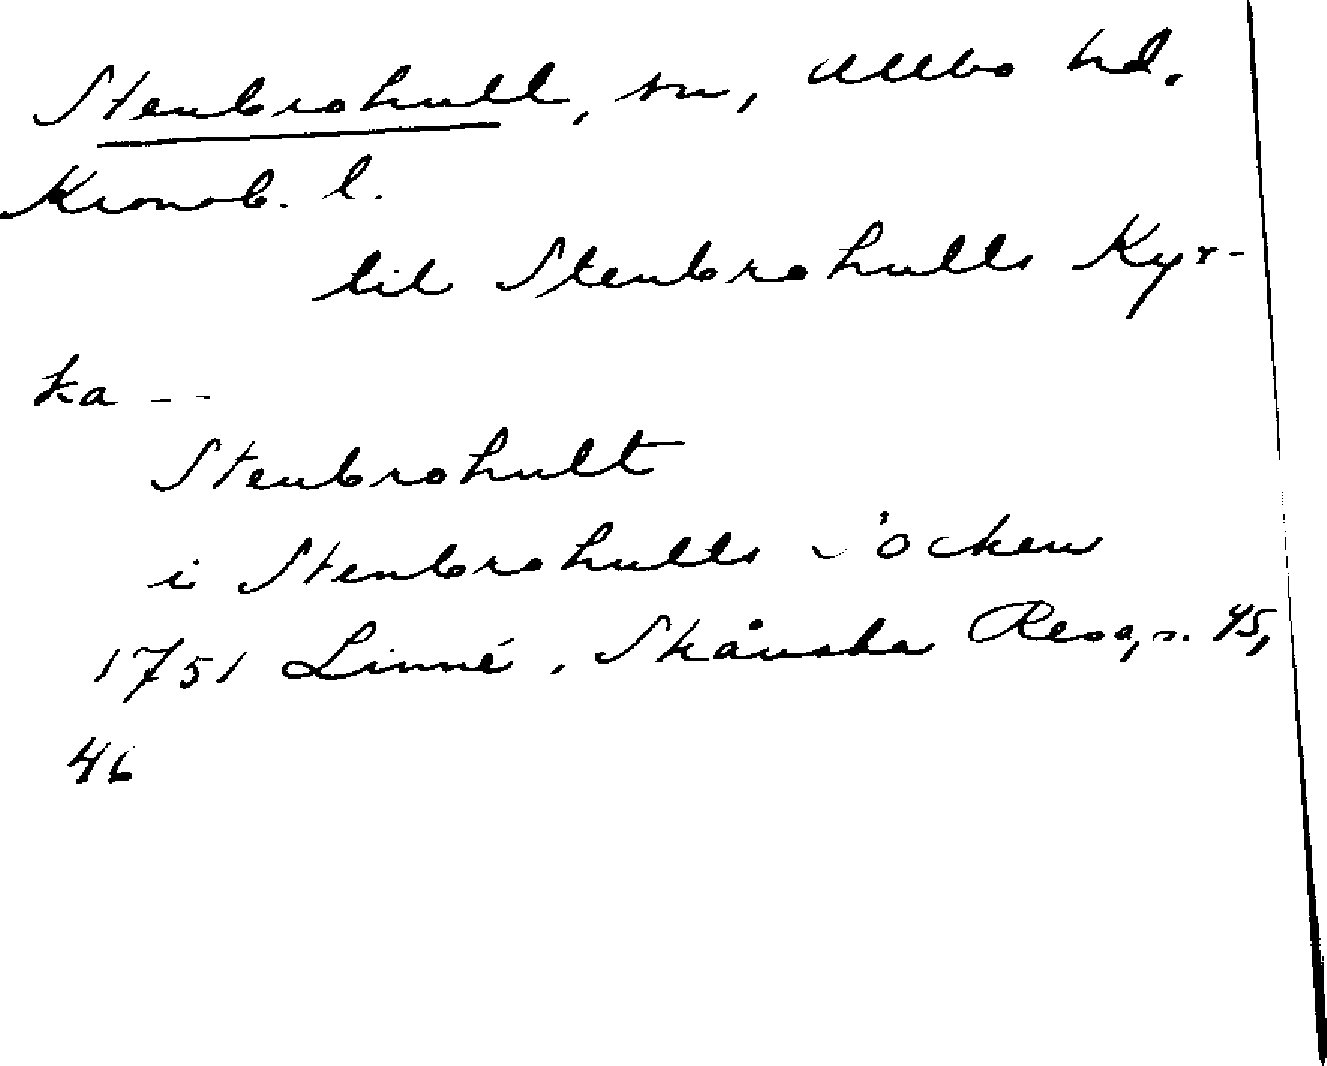 Stenbrohult, sn, Allbo hd.
Kronob. l.
til Stenbrohults Kyr-
ka --
Stenbrohult
i Stenbrohults Socken
1751 Linné, Skånska Resa, s. 45,
46